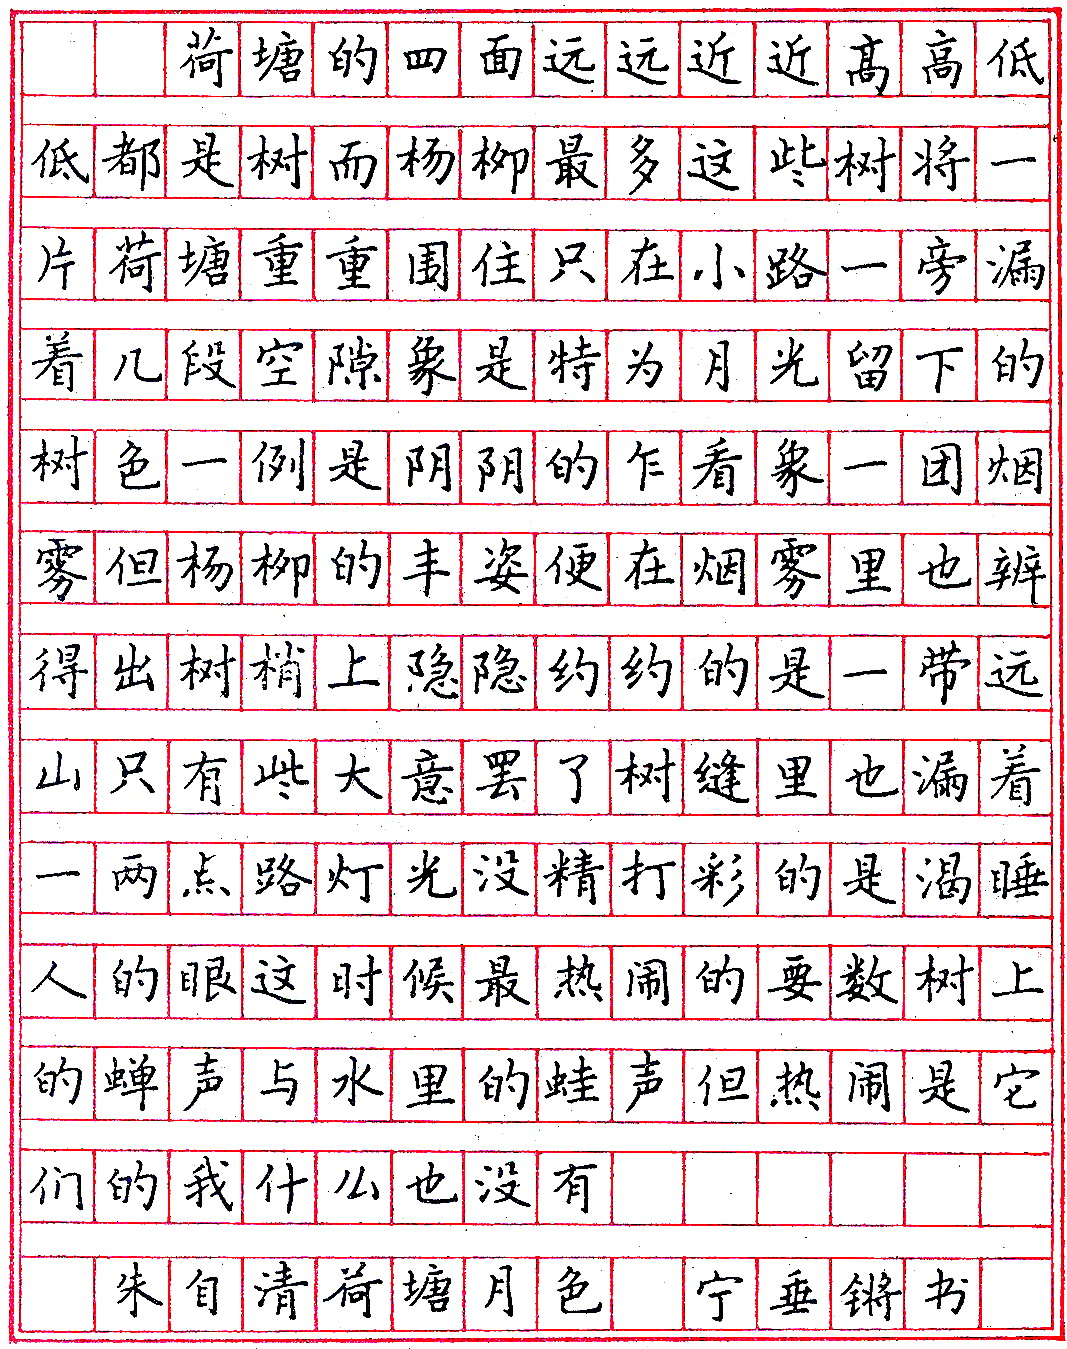 荷塘的四面远远近近高高低
低都是树而杨柳最多这些树将一
片荷塘重重围住只在小路一旁漏
着几段空隙象是特为月光留下的
树色一例是阴阴的乍看象一团烟
雾但杨柳的丰姿便在烟雾里也辨
得出树梢上隐隐约约的是一带远
山只有些大意罢了树缝里也漏着
一两点路灯光没精打彩的是渴睡
人的眼这时候最热闹的要数树上
的蝉声与水里的蛙声但热闹是它
们的我什么也没有
朱自清荷塘月色 宁垂锵书